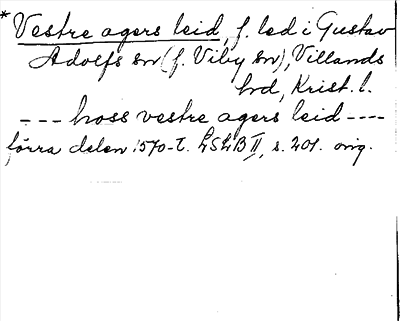 * Vestre agers leid, f. led i Gustav
Adolfs sn (f. Viby sn), Villands
hd, Krist. l.
--- hoss vestre agers leid ----
förra delen 1570-t. LSLB II, s. 201. orig.